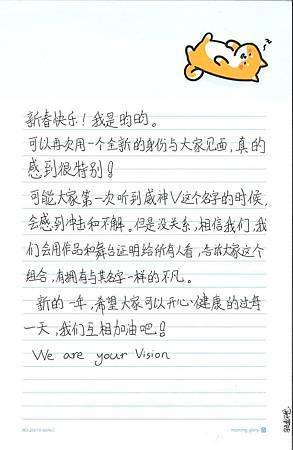 新春快乐！我是昀昀。
可以再次用一个全新的身份与大家见面，真的
感到很特别！
可能大家第一次听到威神V这个名字的时候，
会感到冲击和不解。但是没关系，相信我们，我
们会用作品和舞台证明给所有人看，告诉大家这个
组合，有拥有与其名字一样的不凡。
新的一年，希望大家可以开心健康的过每
一天，我们互相加油吧！
We are your Vision
morning glory